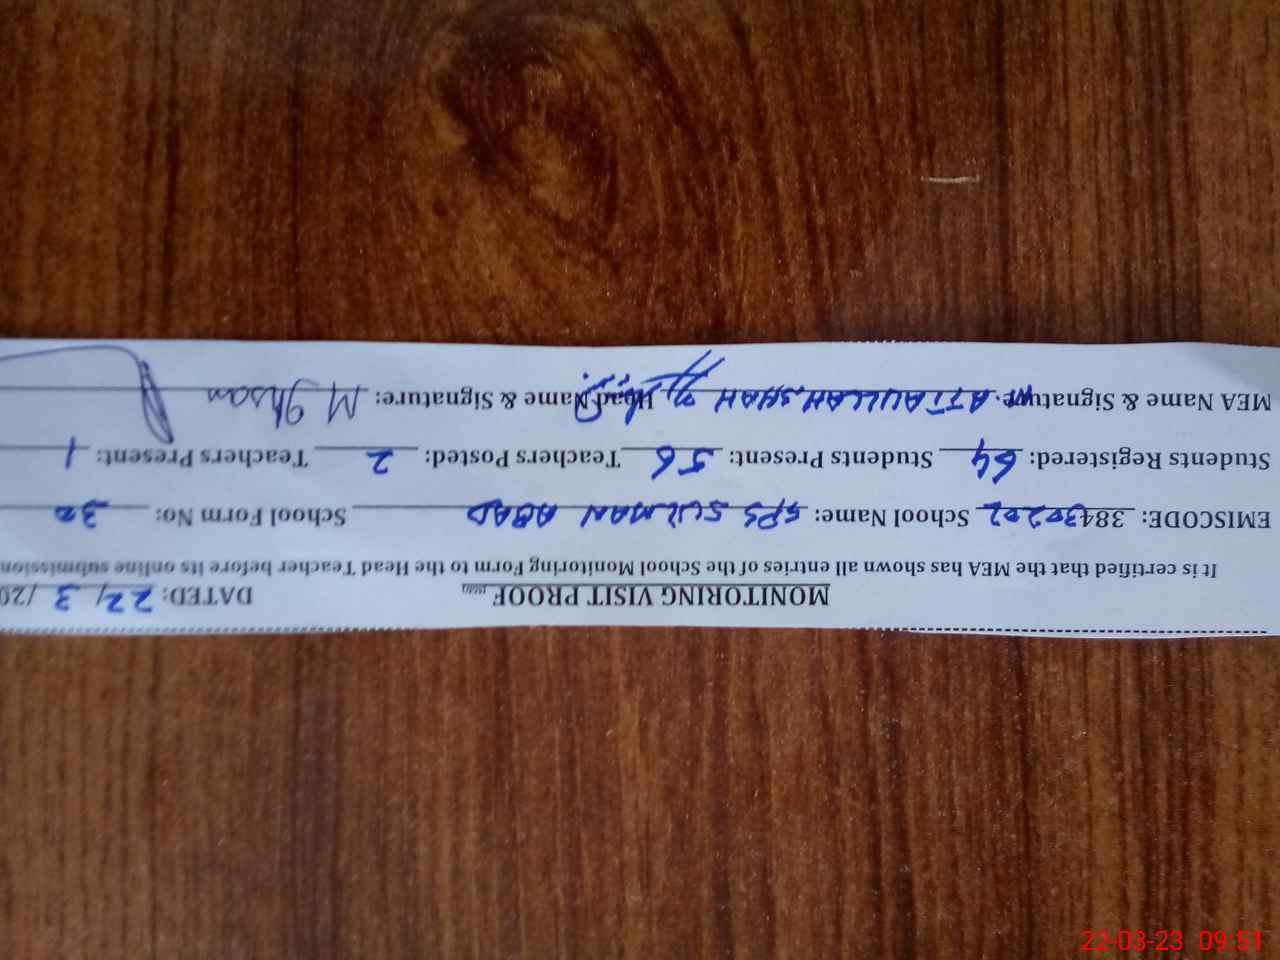 MONITORING VISIT PROOF DATED: 22/ 3 /20
It is certified that the MEA has shown all entries of the School Monitoring Form to the Head Teacher before its online submission
EMISCODE: 38430202 School Name: GPS SULMAN ABAD School Form No: 30
Students Registered: 64 Students Present: 56 Teachers Posted: 2 Teachers Present: 1
MEA Name & Signature: M. ATTAULLAH SHAH Head Name & Signature: M Ihsan
22-03-23 09:51